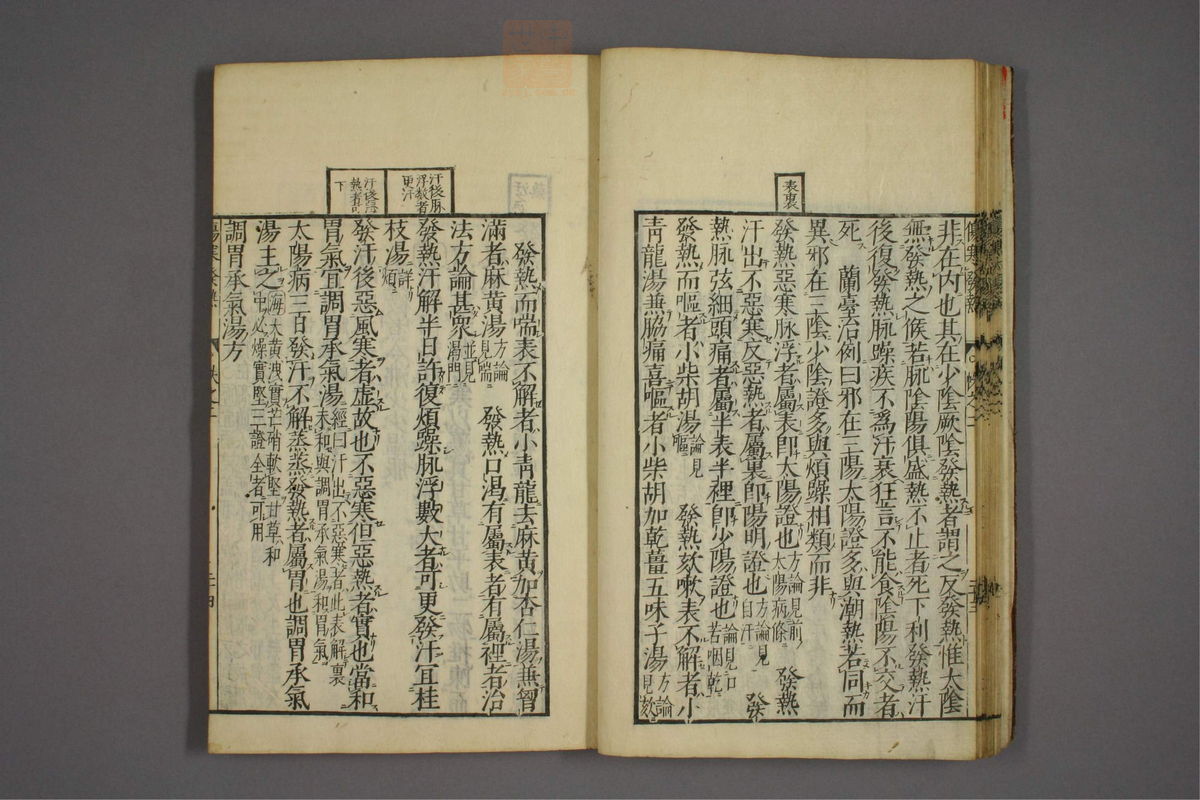 表裏
非在內也其在少陰厥陰發熱者謂之反發熱惟太陰
無發熱之候若脉陰陽俱盛熱不止者死下利發熱汗
後復發熱脉躁疾不爲汗衰狂言不能食陰陽不交者
死 蘭臺治例曰邪在三陽太陽證多與潮熱若同而
異邪在三陰少陰證多與煩躁相類而非
發熱惡寒脉浮者屬表卽太陽證也方論見前太陽病條 發熱
汗出不惡寒反惡熱者屬裏卽陽明證也方論見自汗 發
熱脉弦細頭痛者屬半表半裡卽少陽證也論見口若咽乾
發熱而嘔者小柴胡湯論見嘔 發熱欬嗽表不解者小
靑龍湯無脇痛喜嘔者小柴胡加乾薑五味子湯方論見欬
汗後脉浮數者更汗
下
發熱而喘表不解者小靑龍去麻黃加杏仁湯無
滿者麻黃湯方論見喘 發熱口渴有屬表者有屬裡者治
法方論甚衆並見湯門
發熱汗解半日許復煩躁脉浮數大者可更發汗宜桂
枝湯詳煩
發汗後惡風寒者虛故也不惡寒但惡熱者實也當和
胃氣宜調胃承氣湯經曰汗出不惡寒者此表解裏未和與調胃承氣湯和胃氣
太陽病三日發汗不解蒸蒸發熱者屬胃也調胃承氣
湯主之海大黃洩實芒硝軟堅甘草和中必燥實堅三證全者可用
調胃承氣湯方